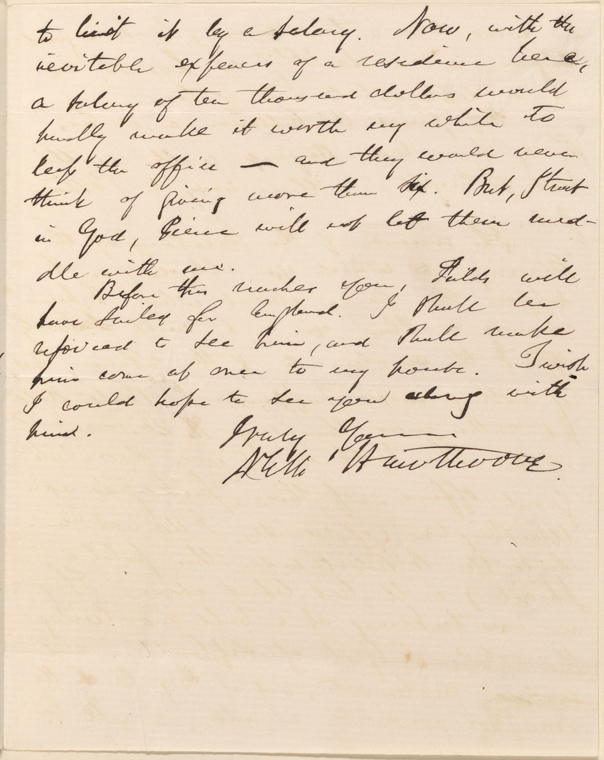 to limit it by a salary. Now, with the
inevitable expenses of a residence here,
a salary of ten thousand dollars would
hardly make it worth my while to
keep the office — and they would never
think of giving more than six. But, I trust
in God, Pierce will not let them med-
dle with me.
Before this reaches you, Fields will
have sailed for England. I shall be
rejoiced to see him, and shall make
him come at once to my house. I wish
I could hope to see you along with
him.
Truly Yours
Nath Hawthorne.